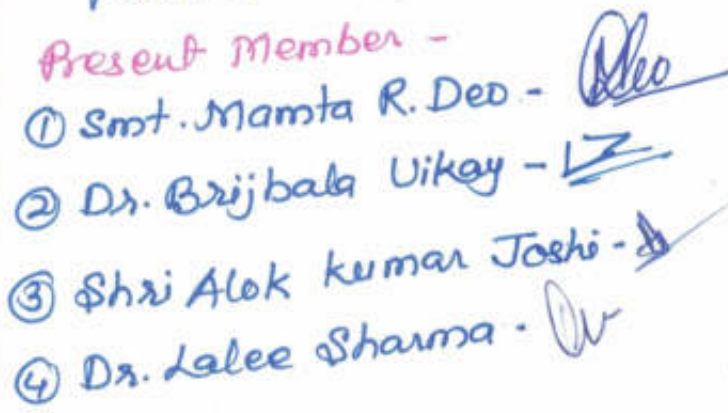 Present Member -
① Smt. Mamta R. Deo - Deo
② Dr. Brijbala Uikey -
③ Shri Alok kumar Joshi -
④ Dr. Lalee Sharma -